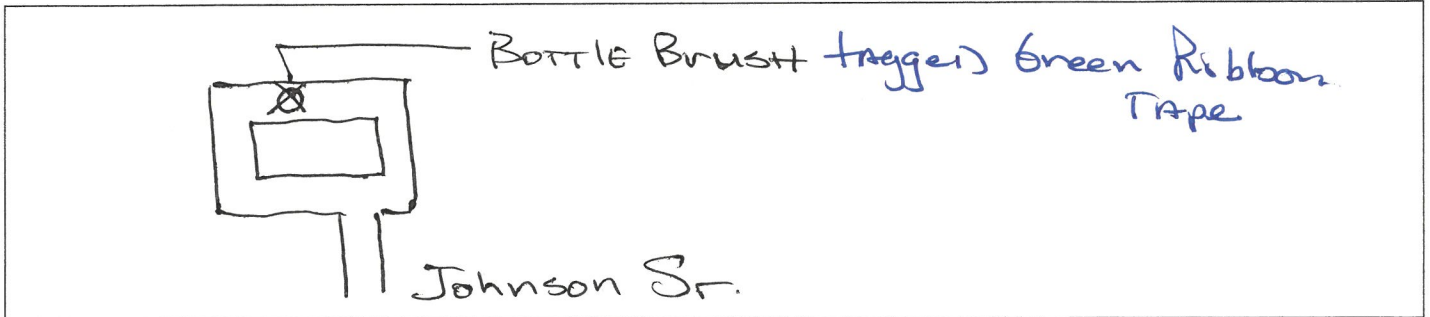 BOTTLE BRUSH tAgged Green Ribbon
TApe
Johnson ST.